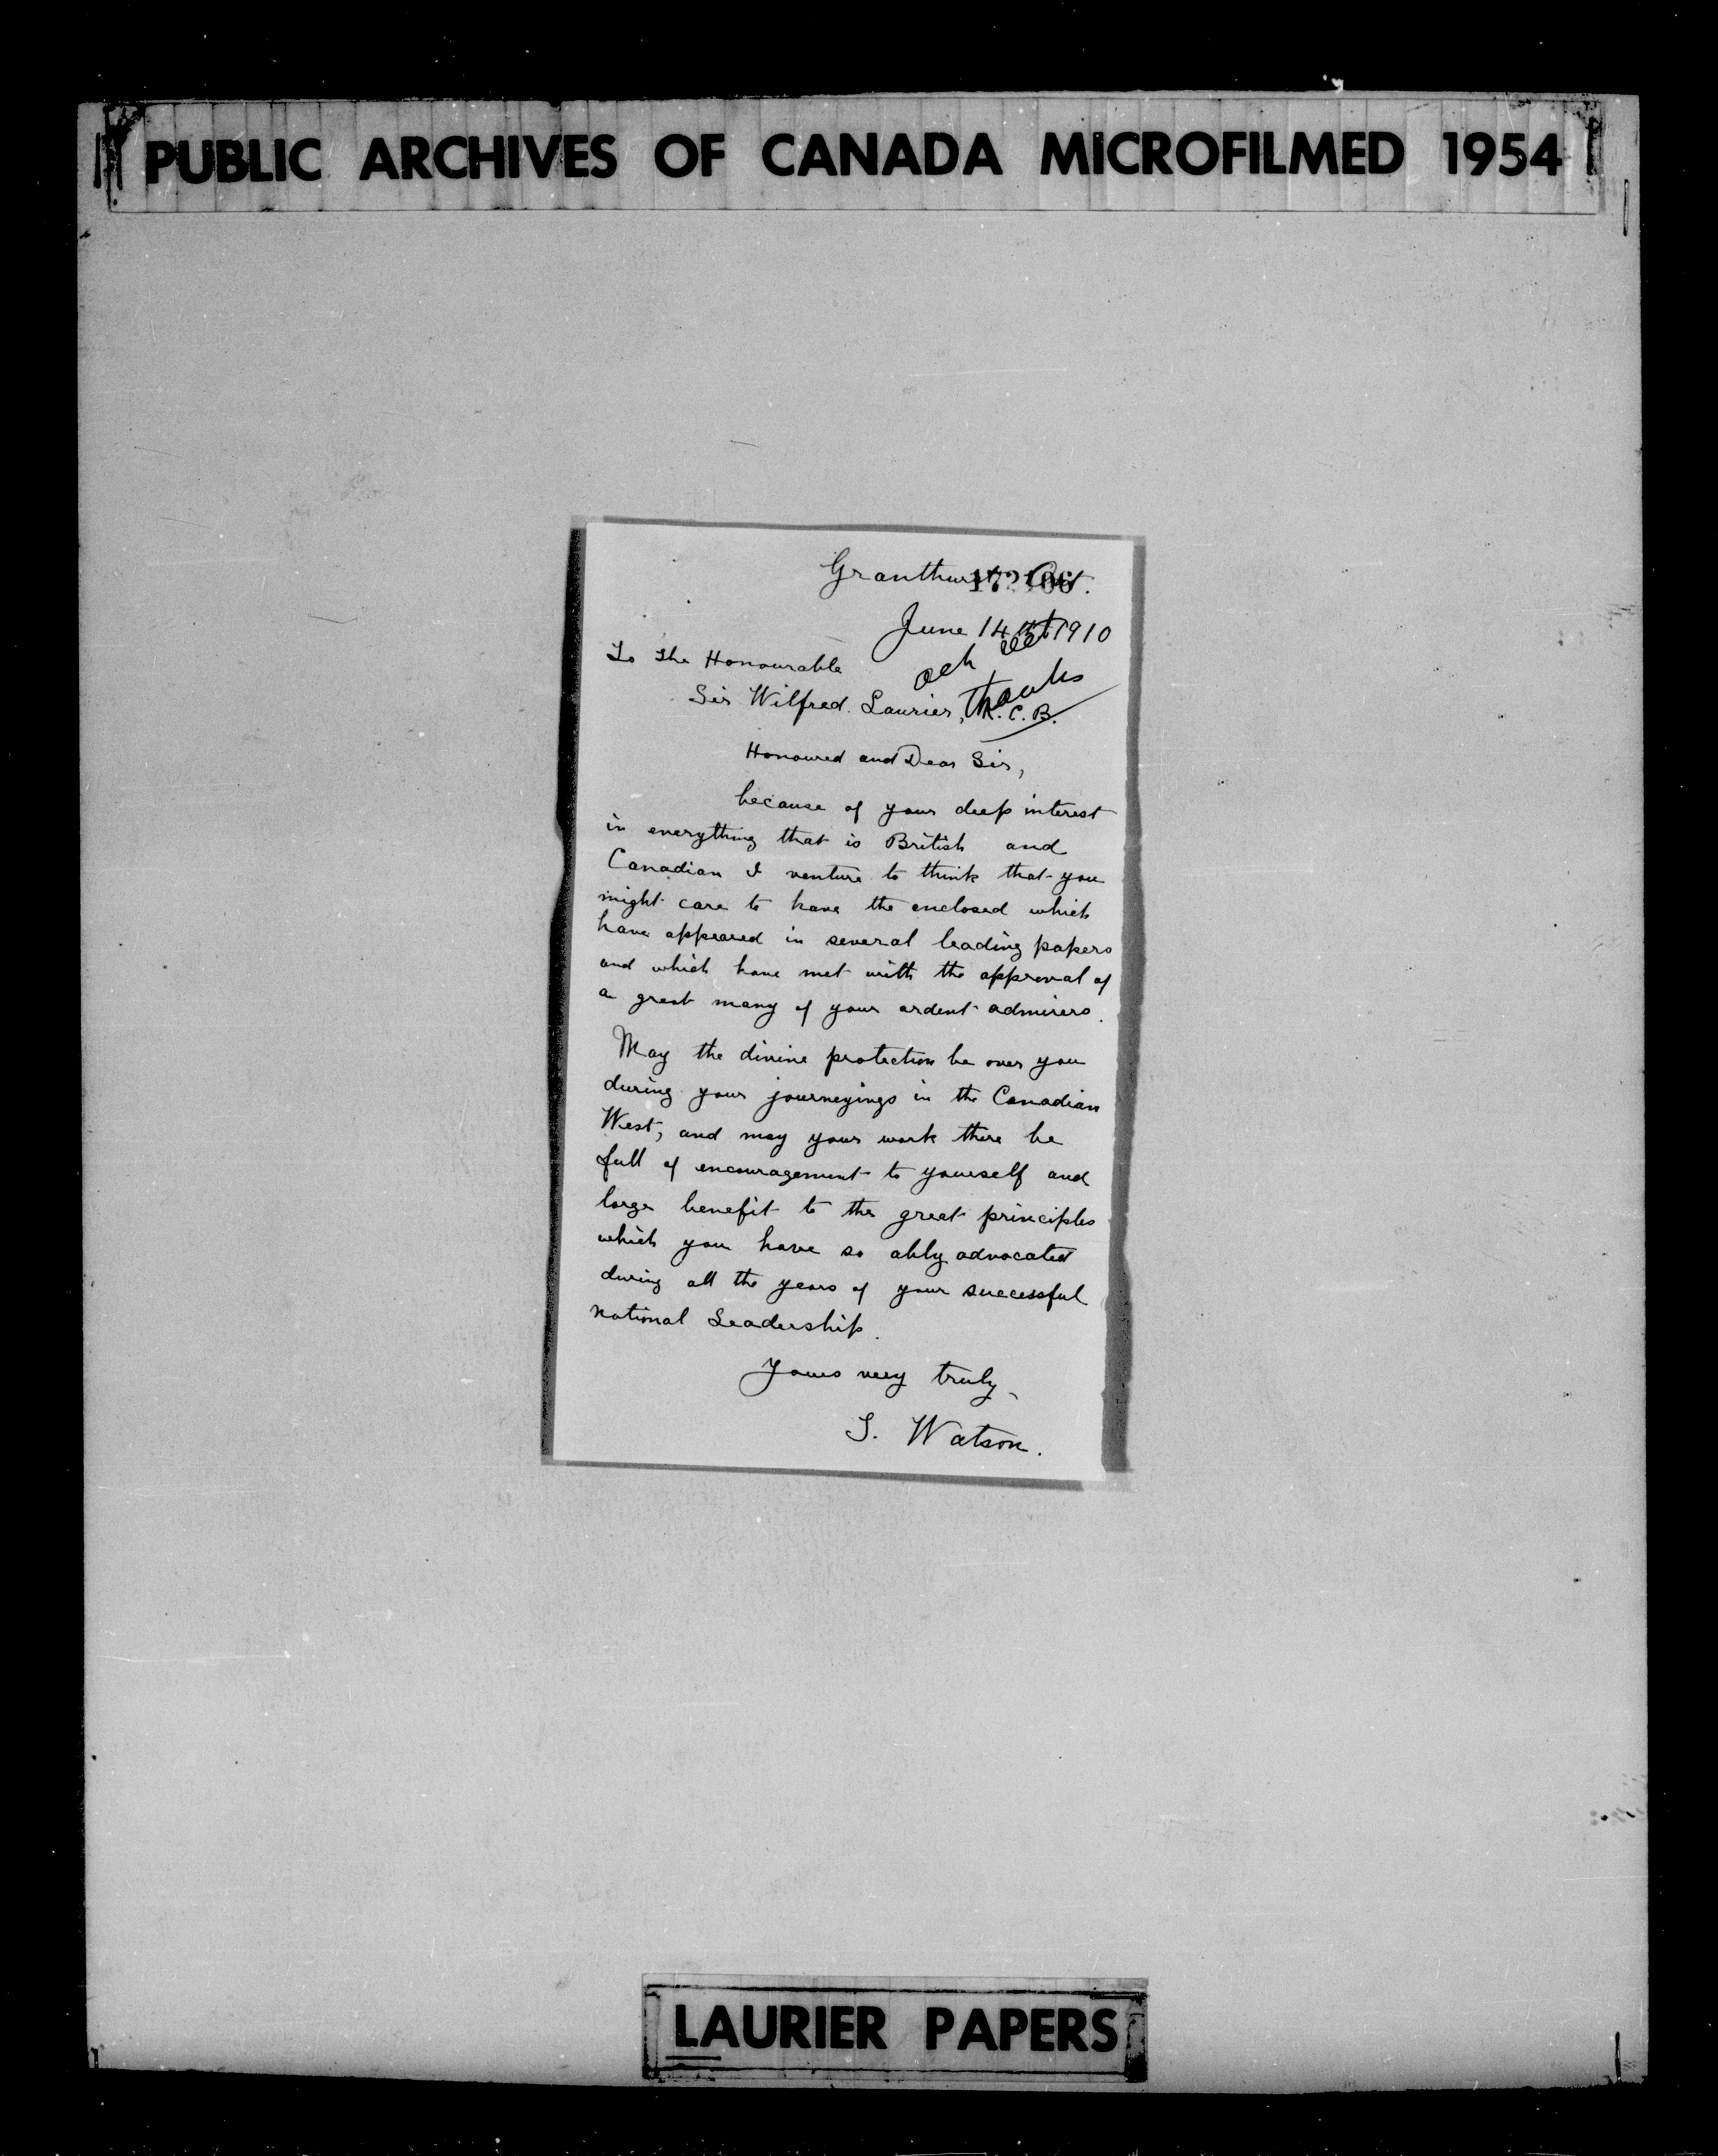 PUBLIC ARCHIVES OF CANADA MICROFILMED 1954
Granthurst Ont.
June 14th 1910
To the Honourable
ack
thanks
Sir Wilfred Laurier, K.C.B.
Honoured and Dear Sir,
because of your deep interest
in everything that is British and
Canadian I venture to think that you
might care to have the enclosed which
have appeared in several leading papers
and which have met with the approval of
a great many of your ardent admirers.
May the divine protection be over you
during your journeyings in the Canadian
West, and may your work there be
full of encouragement to yourself and
large benefit to the great principles
which you have so ably advocated
during all the years of your successful
national Leadership.
Yours very truly,
S. Watson.
LAURIER PAPERS